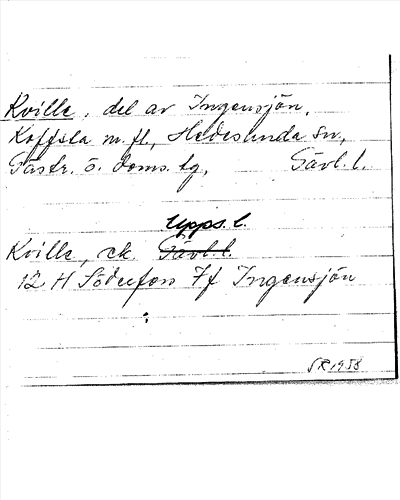 Kville, del av Ingensjön,
Koffsta m. fl., Hedesunda sn,
Gästr. ö. doms. tg, Gävl. l.
Upps. l.
Kville, ek. Gävl. l.
12 H Söderfors 7f Ingensjön
SR 1958